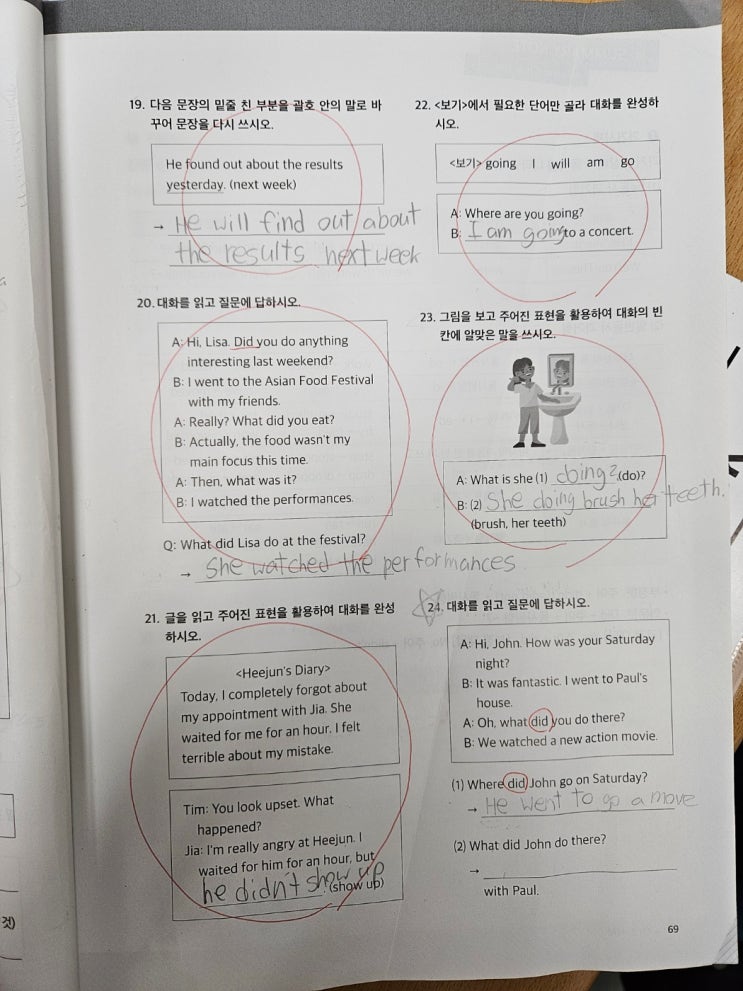 19. 다음 문장의 밑줄 친 부분을 괄호 안의 말로 바
꾸어 문장을 다시 쓰시오.
He found out about the results
yesterday. (next week)
→ He will find out about
the results next week
20. 대화를 읽고 질문에 답하시오.
A: Hi, Lisa. Did you do anything
interesting last weekend?
B: I went to the Asian Food Festival
with my friends.
A: Really? What did you eat?
B: Actually, the food wasn't my
main focus this time.
A: Then, what was it?
B: I watched the performances.
Q: What did Lisa do at the festival?
→ She watched the performances
21. 글을 읽고 주어진 표현을 활용하여 대화를 완성
하시오.
<Heejun's Diary>
Today, I completely forgot about
my appointment with Jia. She
waited for me for an hour. I felt
terrible about my mistake.
Tim: You look upset. What
happened?
Jia: I'm really angry at Heejun. I
waited for him for an hour, but
he didn't show up (show up)
22. <보기>에서 필요한 단어만 골라 대화를 완성하
시오.
<보기> going I will am go
A: Where are you going?
B: I am going to a concert.
23. 그림을 보고 주어진 표현을 활용하여 대화의 빈
칸에 알맞은 말을 쓰시오.
A: What is she (1) doing? (do)?
B: (2) She doing brush her teeth.
(brush, her teeth)
24. 대화를 읽고 질문에 답하시오.
A: Hi, John. How was your Saturday
night?
B: It was fantastic. I went to Paul's
house.
A: Oh, what did you do there?
B: We watched a new action movie.
(1) Where did John go on Saturday?
→ He went to go a move
(2) What did John do there?
→
with Paul.
69
것)